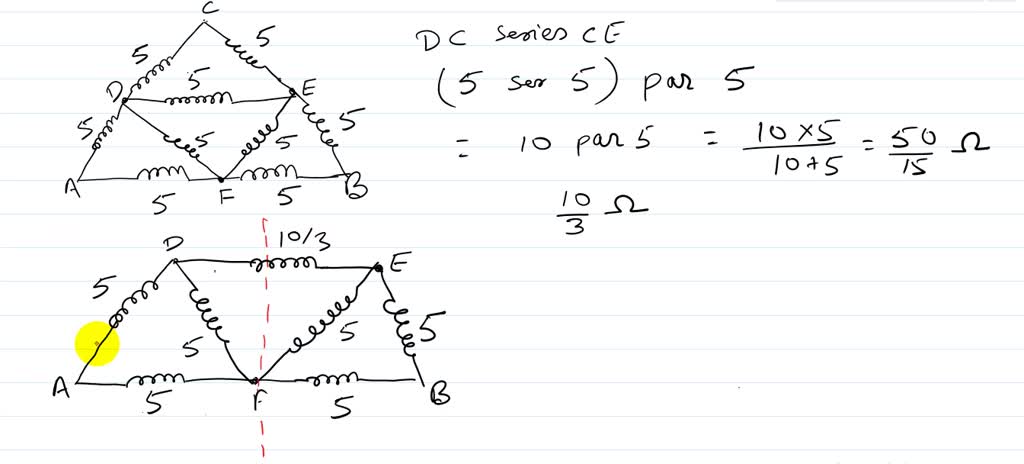 C
5
5
DC series CE
D
5
E
(5 ser 5) par 5
5
5
5
5
= 10 par 5 = 10×5/10+5 = 50/15 Ω
A
5
F
5
B
10/3 Ω
D
10/3
E
5
5
5
5
A
5
F
5
B